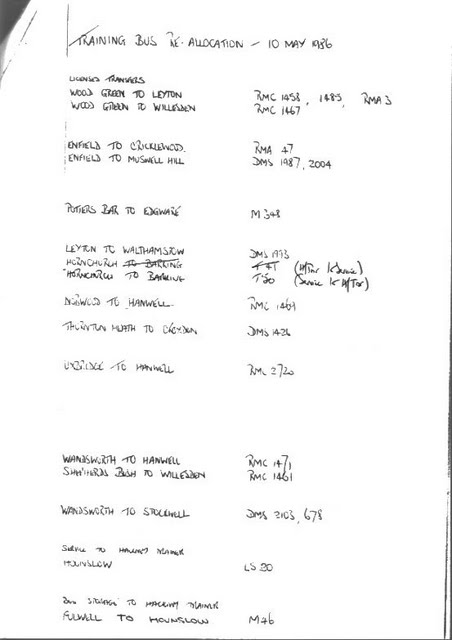 TRAINING BUS RE-ALLOCATION - 10 MAY 1986
LICENSED TRANSFERS
WOOD GREEN TO LEYTON RMC 1458, 1485, RMA 3
WOOD GREEN TO WILLESDEN RMC 1467
ENFIELD TO CRICKLEWOOD. RMA 47
ENFIELD TO MUSWELL HILL DMS 1987, 2004
POTTERS BAR TO EDGWARE M 348
LEYTON TO WALTHAMSTOW DMS 1993
HORNCHURCH TO BARKING (H/Tnr to Service)
HORNCHURCH TO BARKING T 50 (Service to H/Tnr)
NORWOOD TO HANWELL. RMC 1469
THORNTON HEATH TO CROYDON DMS 1426
UXBRIDGE TO HANWELL RML 2720
WANDSWORTH TO HANWELL RMC 1471
SHEPHERDS BUSH TO WILLESDEN RMC 1461
WANDSWORTH TO STOCKWELL DMS 2103, 678
SERVICE TO HACKNEY TRAINER
HOUNSLOW LS 20
BUS STORAGE TO HACKNEY TRAINER
FULWELL TO HOUNSLOW M 46